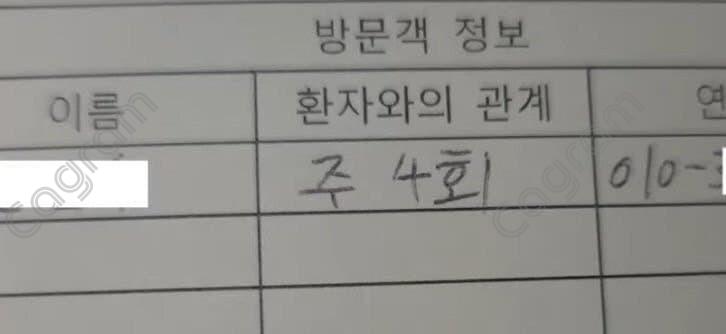 방문객 정보
이름 환자와의 관계 연
주 4회 010-3
cagram cagram